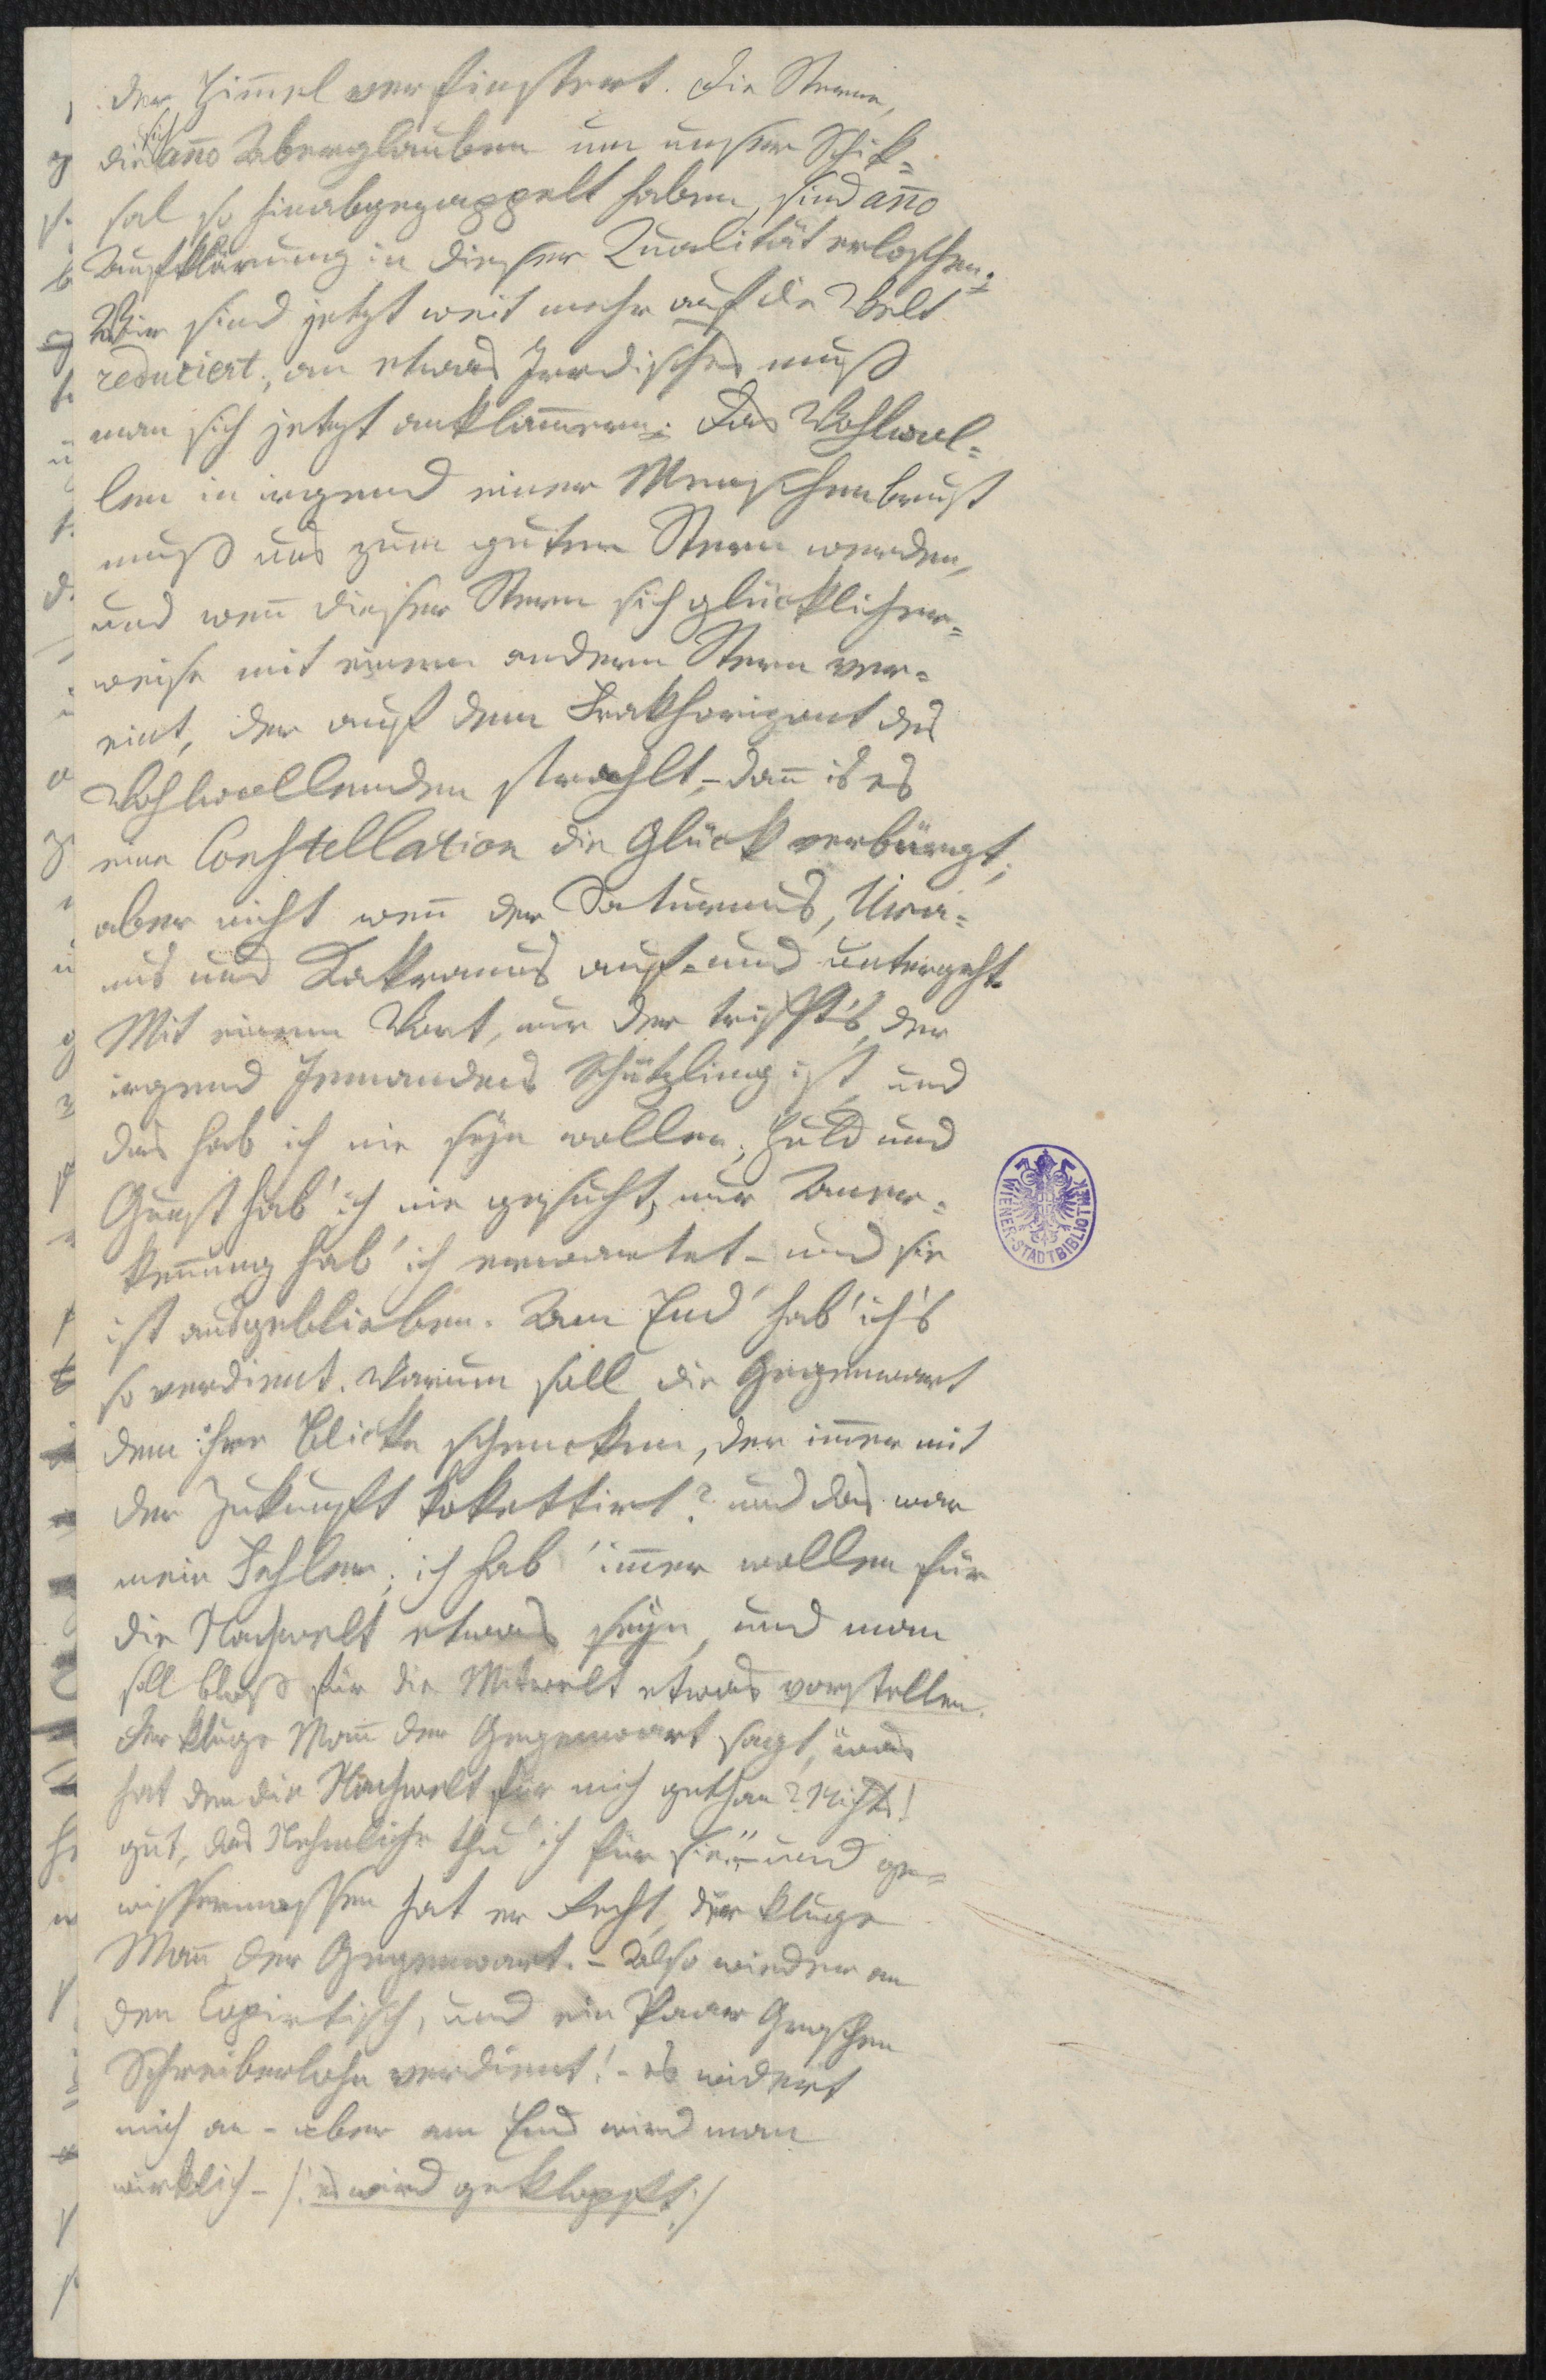 der Him̄el verfinstert. Die Sterne,
die sich an̄o Aberglauben um unser Schick=
sal so hinabgezappelt haben, sind an̄o
Aufklärung in dieser Qualität erloschen;
Wir sind jetzt weit mehr auf die Welt
reduciert; an etwas Irrdisches muß
man sich jetzt anklam̄ern; Das Wohlwol=
len in irgend einer Menschenbrust
muß uns zum guten Stern werden,
und wen̄ dieser Stern sich glücklicher=
weise mit einem andern Stern ver=
eint, der auf dem Frakhorizont des
Wohlwollenden strahlt, – dan̄ is es
eine Constellation die Glück verbürgt;
aber nicht wen̄ der Saturnus, Ura=
nus und Kakranus auf= und untergeht.
Mit einem Wort, nur der trifft's, der
irgend Jemandens Schützling ist, und
das hab ich nie seyn wollen; Huld und
Gunst hab' ich nie gesucht, nur Aner=
ken̄ung hab' ich erwartet – und sie
ist ausgeblieben. Am End' hab' ich's
so verdient. Warum soll die Gegenwart
dem ihre Blicke schencken, der im̄er mit
der Zukunft kokettirt? und das war
mein Fehler; ich hab' im̄er wollen für
die Nachwelt etwas seyn, und man
soll bloß für die Mitwelt etwas vorstellen.
Der kluge Man̄ der Gegenwart sagt, „was
hat den die Nachwelt für mich gethan? Nichts!
gut, das Nehmliche thu' ich für sie" – und ge=
wissermassen hat er Recht, der kluge
Man̄ der Gegenwart. – Also wieder an
den Copirtisch, und ein Paar Groschen
Schreiberlohn verdient! – es widert
mich an – aber am End wird man
wirklich – /: es wird geklopft :/
WIENER-STADTBIBLIOTHEK